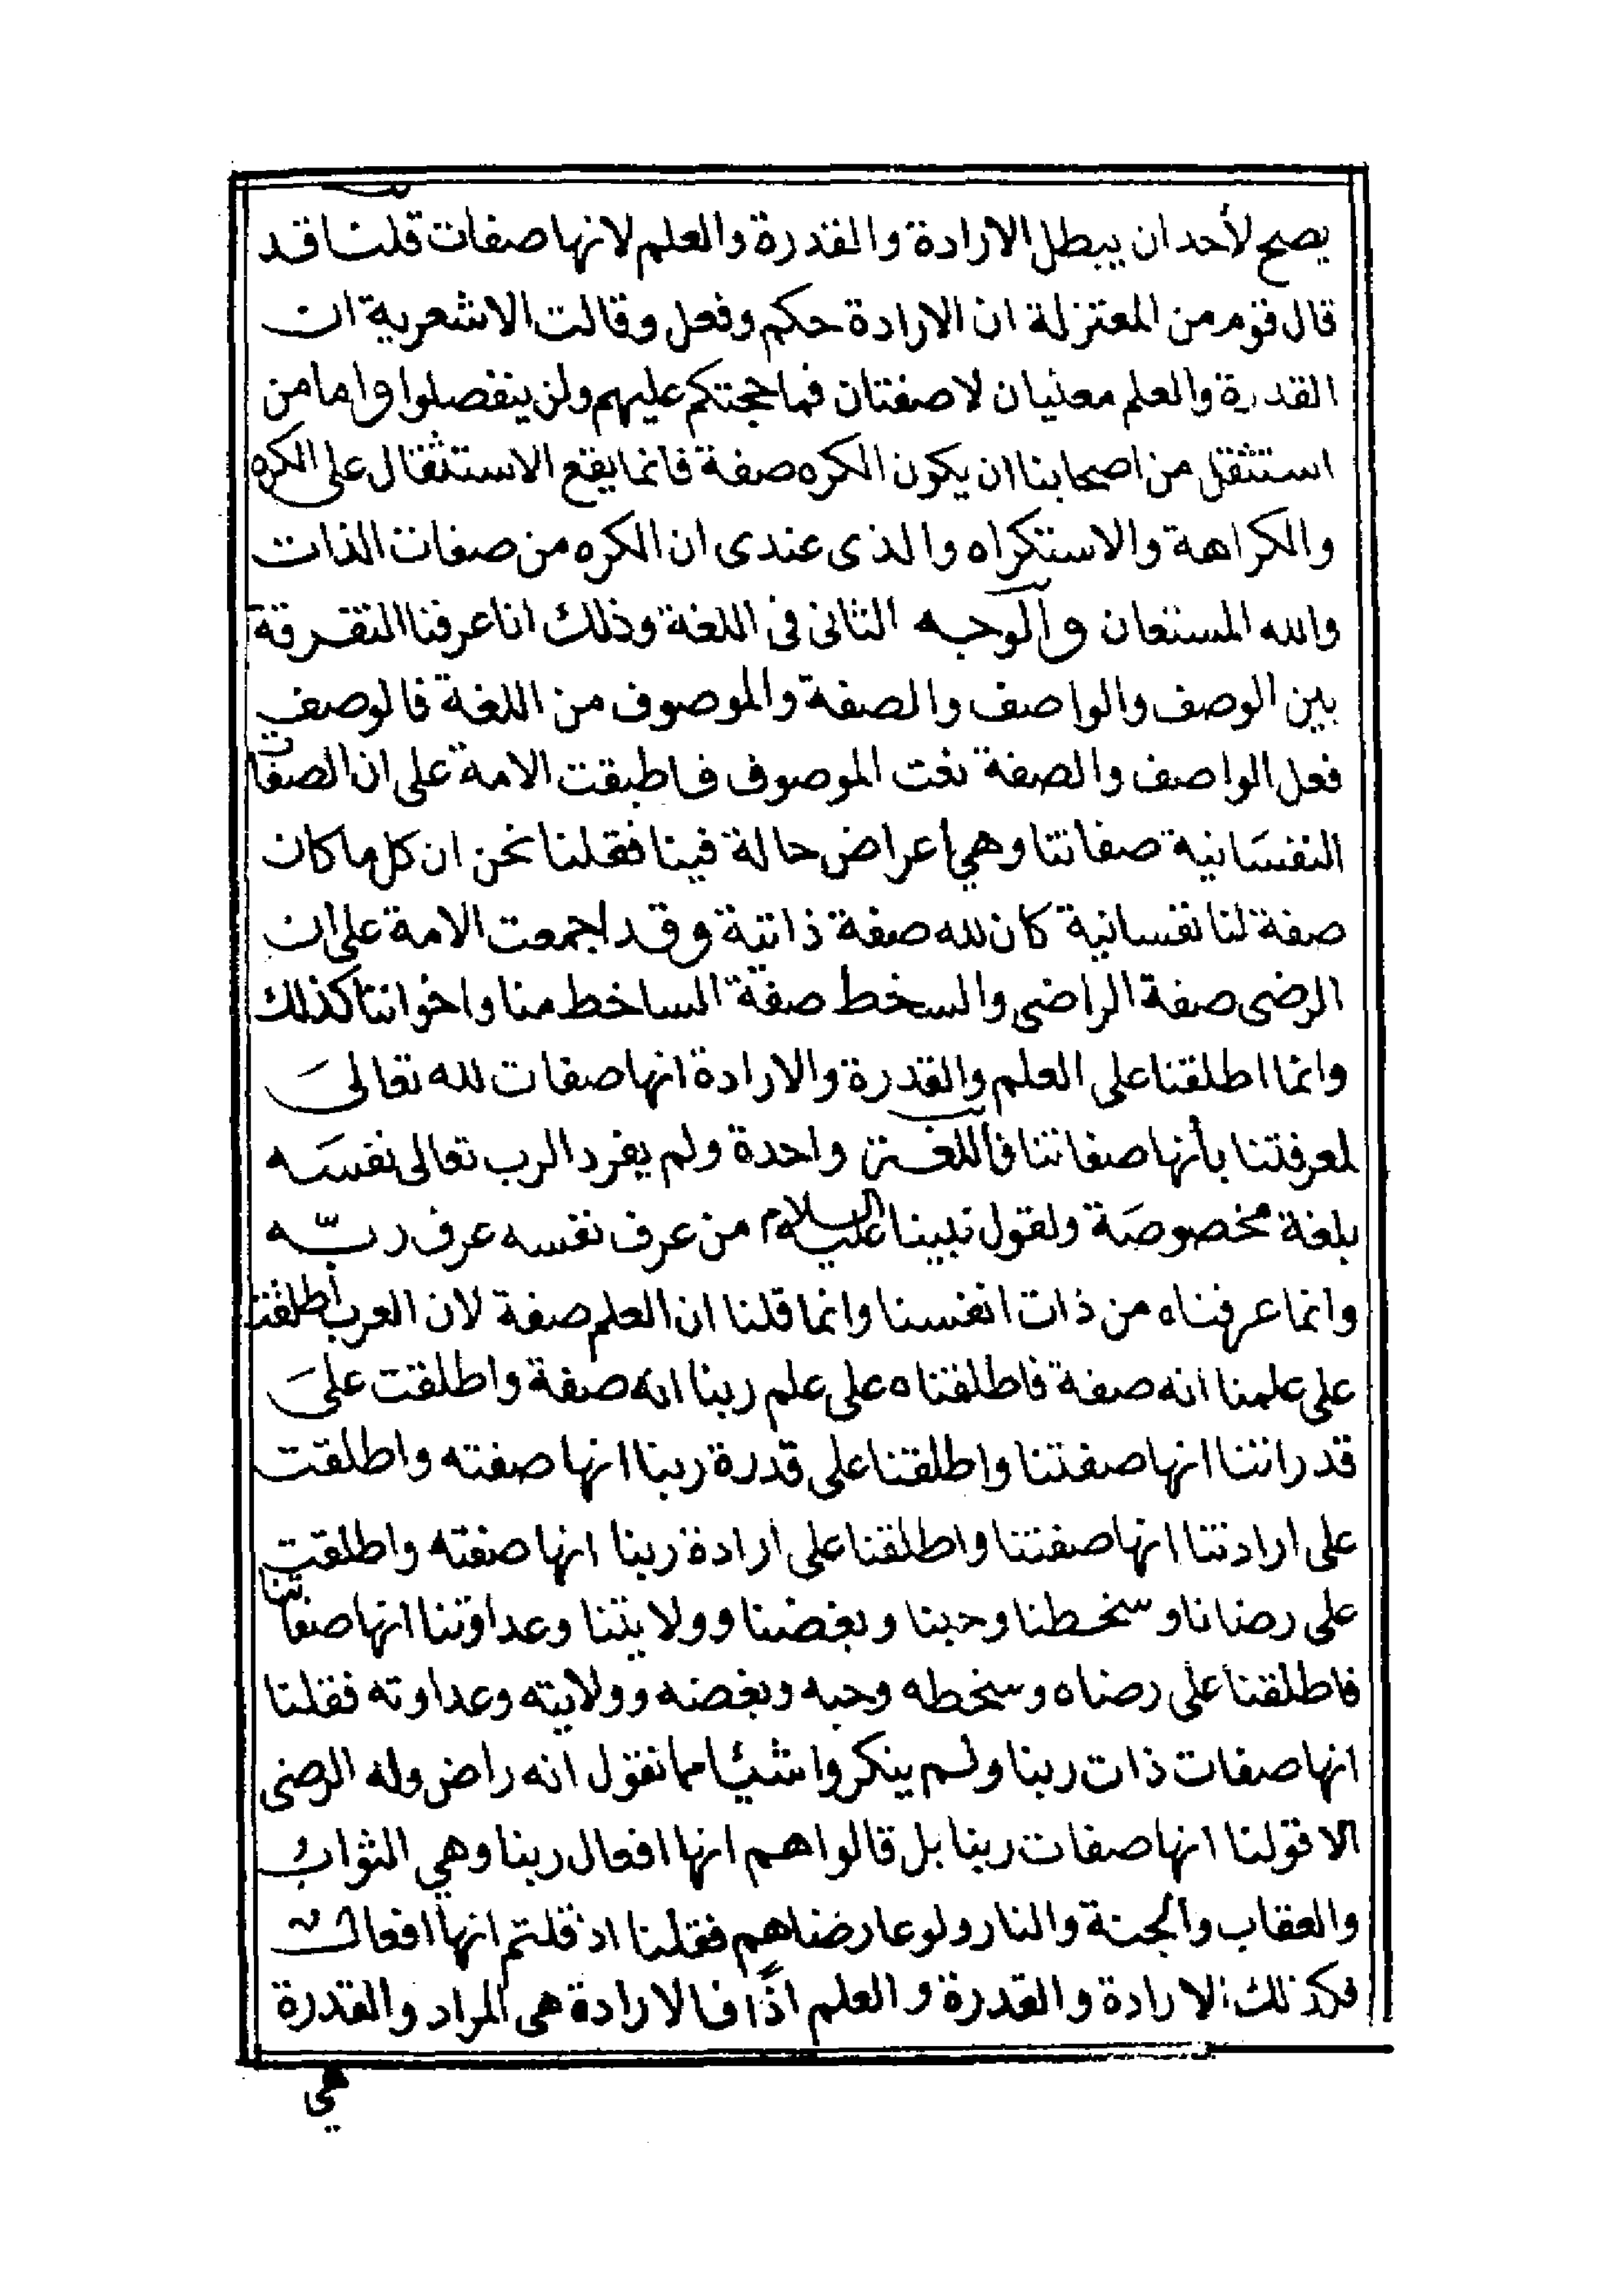 يصح لأحد ان يبطل الارادة والقدرة والعلم لانها صفات قلنا قد
قال قوم من المعتزلة ان الارادة حكم وفعل وقالت الاشعرية ان
القدرة والعلم معنيان لا صفتان فما حجتكم عليهم ولن ينفصلوا واما من
استثقل من اصحابنا ان يكون الكره صفة فانما يقع الاستثقال على الكره
والكراهة والاستكراه والذى عندى ان الكره من صفات الذات
والله المستعان والوجه الثانى فى اللغة وذلك انا عرفنا التفرقة
بين الوصف والواصف والصفة والموصوف من اللغة فالوصف
فعل الواصف والصفة نعت الموصوف فاطبقت الامة على ان الصفات
النفسانية صفاتنا وهي أعراض حالة فينا فقلنا نحن ان كل ما كان
صفة لنا نفسانية كان لله صفة ذاتية وقد اجمعت الامة على ان
الرضى صفة الراضى والسخط صفة الساخط منا واخواننا كذلك
وانما اطلقنا على العلم والقدرة والارادة انها صفات لله تعالىَ
لمعرفتنا بأنها صفاتنا فاللغة واحدة ولم يفرد الرب تعالى نفسَه
بلغة مخصوصَة ولقول نبينا عليه السلام من عرف نفسه عرف ربّه
وانما عرفناه من ذات انفسنا وانما قلنا ان العلم صفة لان العرب اطلقت
على علمنا انه صفة فاطلقناه على علم ربنا انه صفة واطلقت علىَ
قدراتنا انها صفتنا واطلقنا على قدرة ربنا انها صفته واطلقت
على ارادتنا انها صفتنا واطلقنا على ارادة ربنا انها صفته واطلقت
على رضانا وسخطنا وحبنا وبغضنا وولايتنا وعداوتنا انها صفاتنا
فاطلقنا على رضاه وسخطه وحبه وبغضه وولايته وعداوته فقلنا
انها صفات ذات ربنا ولم ينكروا شيئا مما نقول انه راض وله الرضى
الا قولنا انها صفات ربنا بل قالوا هم انها افعال ربنا وهي الثواب
والعقاب والجنة والنار ولو عارضناهم فقلنا اذ قلتم انها افعال
فكذلك الارادة والقدرة والعلم اذًا فالارادة هى المراد والقدرة
هي